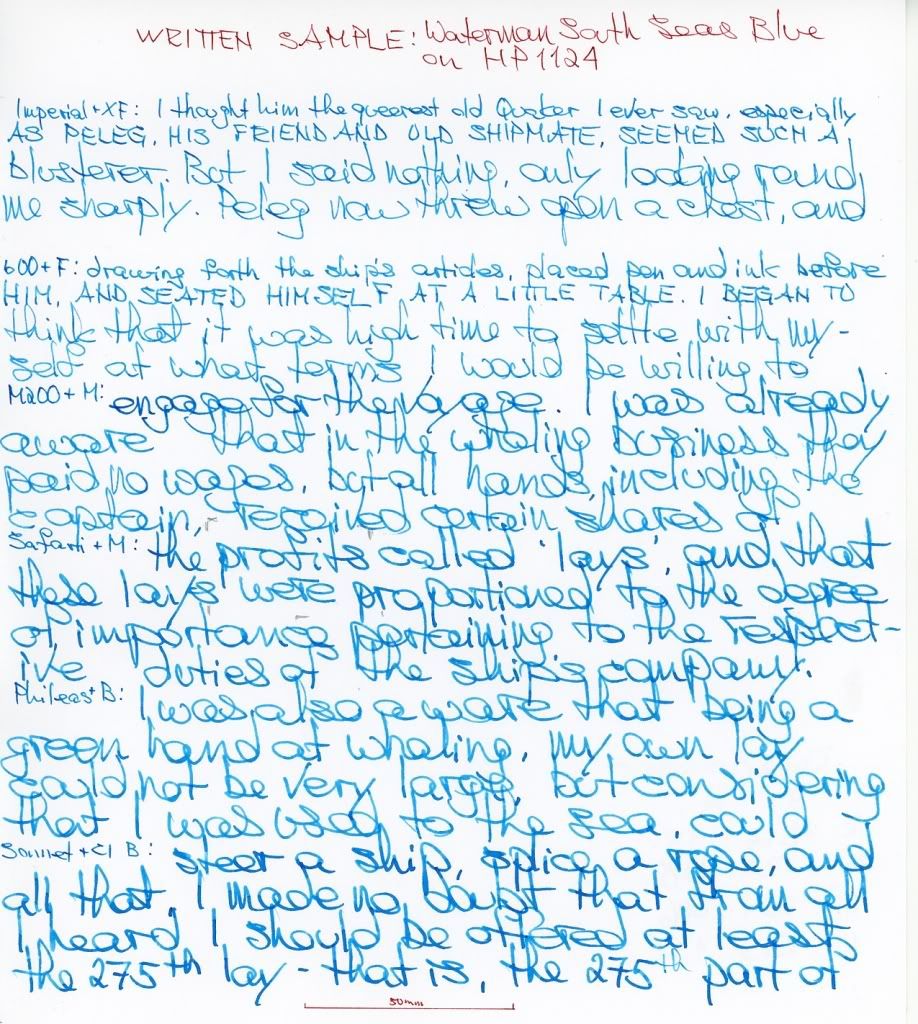 WRITTEN SAMPLE: Waterman South Seas Blue
on HP1124
Imperial + XF: I thought him the queerest old Quaker I ever saw, especially
AS PELEG, HIS FRIEND AND OLD SHIPMATE, SEEMED SUCH A
blusterer. But I said nothing, only looking round
me sharply. Peleg now threw open a chest, and
600 + F: drawing forth the ship's articles, placed pen and ink before
HIM, AND SEATED HIMSELF AT A LITTLE TABLE. I BEGAN TO
think that it was high time to settle with my-
self at what terms I would be willing to
M200 + M: engage for the voyage. I was already
aware that in the whaling business they
paid no wages, but all hands, including the
captain, received certain shares of
Safari + M: the profits called 'lays', and that
these lays were proportioned to the degree
of importance pertaining to the respect-
ive duties of the ship's company.
Phileas + B: I was also aware that being a
green hand at whaling, my own lay
could not be very large, but considering
that I was used to the sea, could
Sonnet + CI B: steer a ship, splice a rope, and
all that, I made no doubt that from all
I heard I should be offered at least
the 275th lay - that is, the 275th part of
50mm